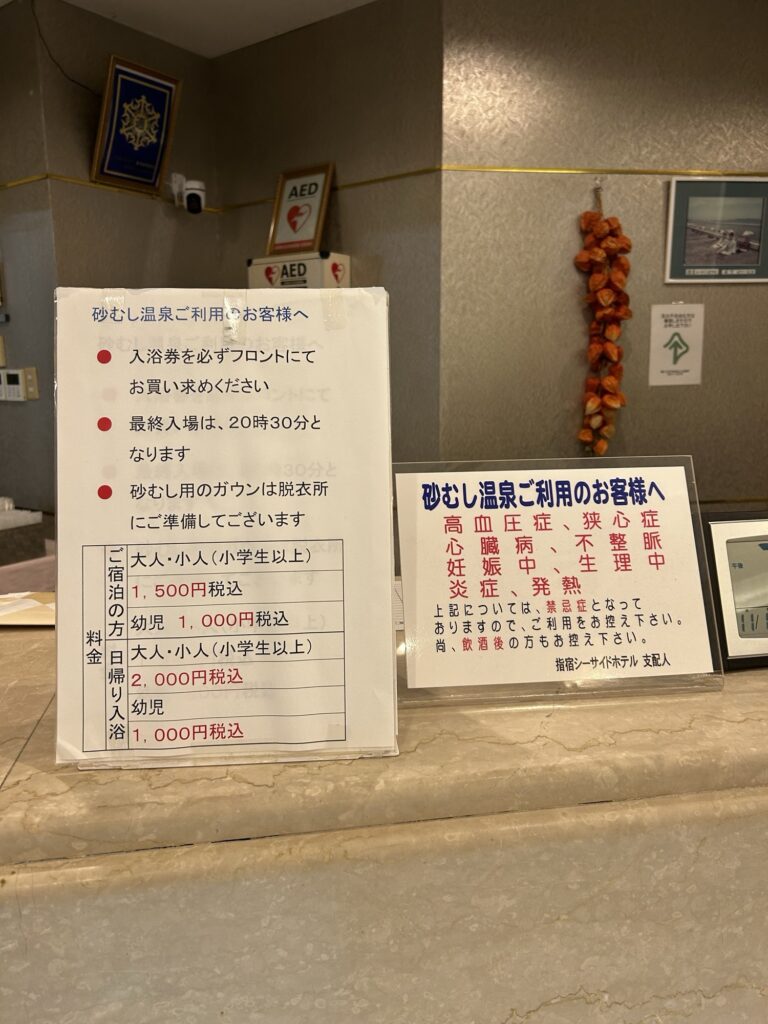 AED
AED
砂むし温泉ご利用のお客様へ
● 入浴券を必ずフロントにて
お買い求めください
● 最終入場は、20時30分と
なります
● 砂むし用のガウンは脱衣所
にご準備してございます
料金
ご宿泊の方
大人・小人(小学生以上)
1,500円税込
幼児 1,000円税込
日帰り入浴
大人・小人(小学生以上)
2,000円税込
幼児
1,000円税込
砂むし温泉ご利用のお客様へ
高血圧症、狭心症
心臓病、不整脈
妊娠中、生理中
炎症、発熱
上記については、禁忌症となって
おりますので、ご利用をお控え下さい。
尚、飲酒後の方もお控え下さい。
指宿シーサイドホテル 支配人
午後
11/